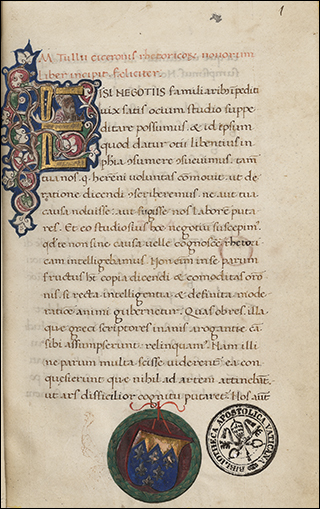 1
M. Tullii ciceronis rhetoricoꝝ nouorum
liber incipit feliciter.
ETSI NEGOTIIS familiaribꝰ īpediti
uix satis ocium studio suppe
ditare possumus & id ipsum
quod datur otii libentius in
phia ↄsumere ↄsueuimus. tam̄
tua nos .q. herenni uoluntas cōmouit. ut de
ratione dicendi ↄscriberemus. ne aut tua
causa noluisse. aut fugisse nos laborē puta
res. Et eo studiosius hoc negotiū suscepimꝰ
qd̄ te non sine causa uelle cognoscē rhetori
cam intelligebamus. Non enim in se parum
fructus h̄t copia dicendi & comoditas oro
nis. si recta intelligentia & definita mode
ratione animi gubernetur. Quas ob res illa
que greci scriptores inanis arrogantie cā
sibi assumpserunt relinquam?. Nam illi
ne parum multa scisse uiderent᷑ ea con
quesierunt que nihil ad artem attinebāt.
ut ars difficilior cognitu putaret᷑. Nos aūt
BIBLIOTHECA APOSTOLICA VATICANA